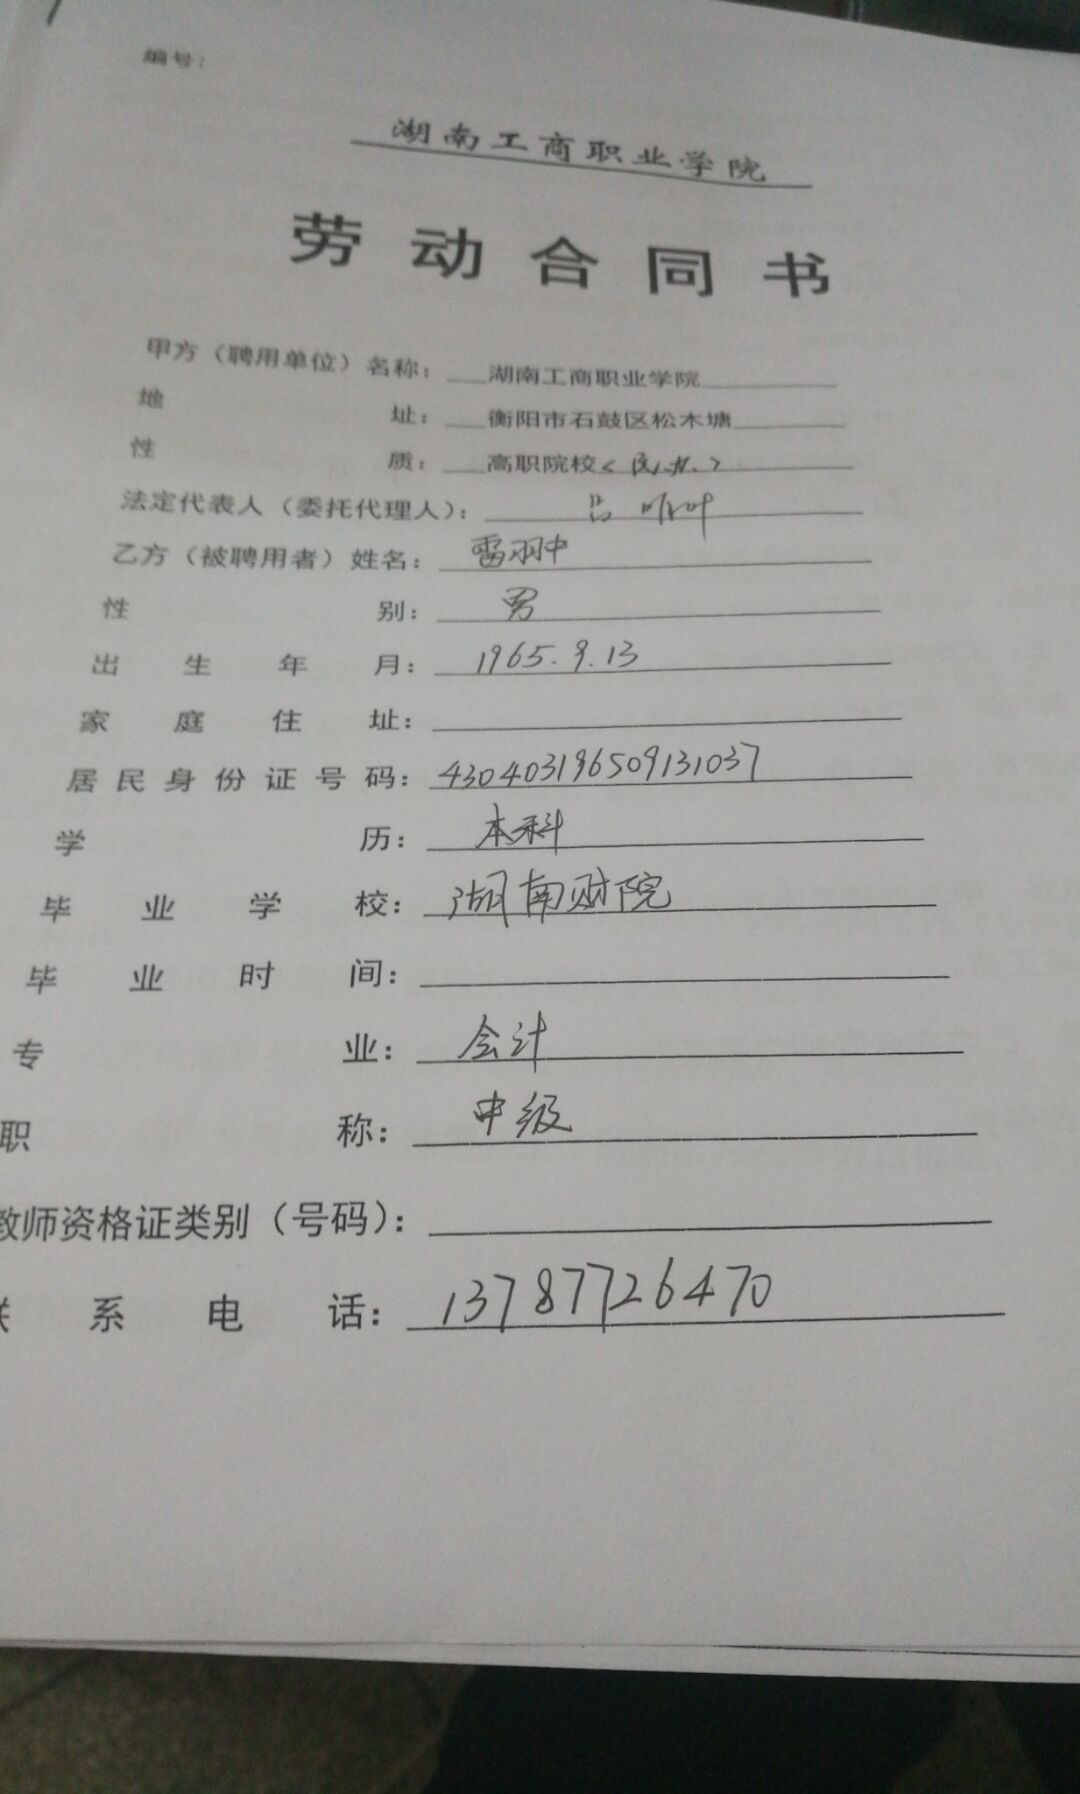 编号：
湖南工商职业学院
劳动合同书
甲方（聘用单位）名称：湖南工商职业学院
地址：衡阳市石鼓区松木塘
性质：高职院校（民办）
法定代表人（委托代理人）：吕
乙方（被聘用者）姓名：雷羽中
性别：男
出生年月：1965.9.13
家庭住址：
居民身份证号码：430403196509131037
学历：本科
毕业学校：湖南财院
毕业时间：
专业：会计
职称：中级
教师资格证类别（号码）：
联系电话：13787726470